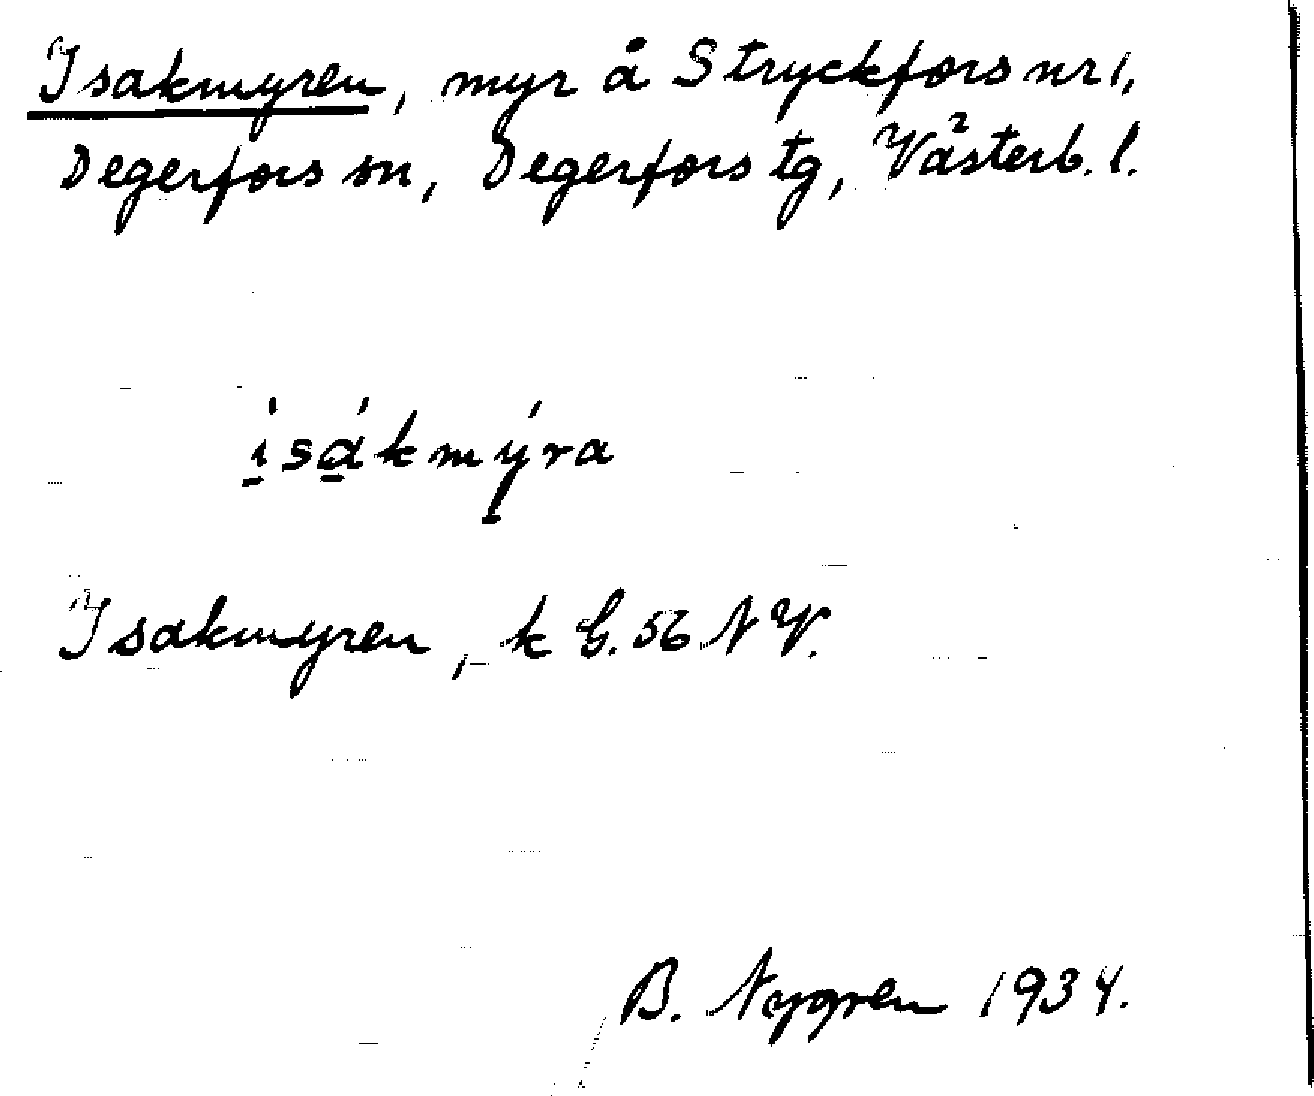 Isakmyren, myr å Stryckfors nr 1,
Degerfors sn, Degerfors tg, Västerb. l.
i̱sá̱kmý̱ra
Isakmyren, k G. 56 N V.
B. Nygren 1934.